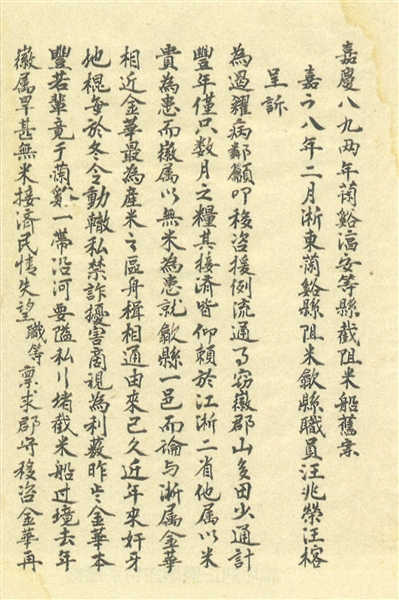 嘉慶八九两年蘭谿淳安等縣截阻米船舊案
嘉慶八年二月浙東蘭谿縣阻米歙縣職員汪兆榮汪榕
呈訴
為過糴病鄰籲叩移咨援例流通事竊徽郡山多田少通計
豐年僅只数月之糧其接濟皆仰賴於江浙二省他属以米
貴為患而徽属以無米為患就歙縣一邑而論与浙属金華
相近金華最為産米之區舟楫相通由來已久近年來奸牙
地棍每於冬令動輙私禁詐擾害商視為利薮昨嵗金華本
豐若輩竟于蘭谿一帶沿河要隘私行堵截米船过境去年
徽属旱甚無米接濟民情失望職等禀求郡守移咨金華再